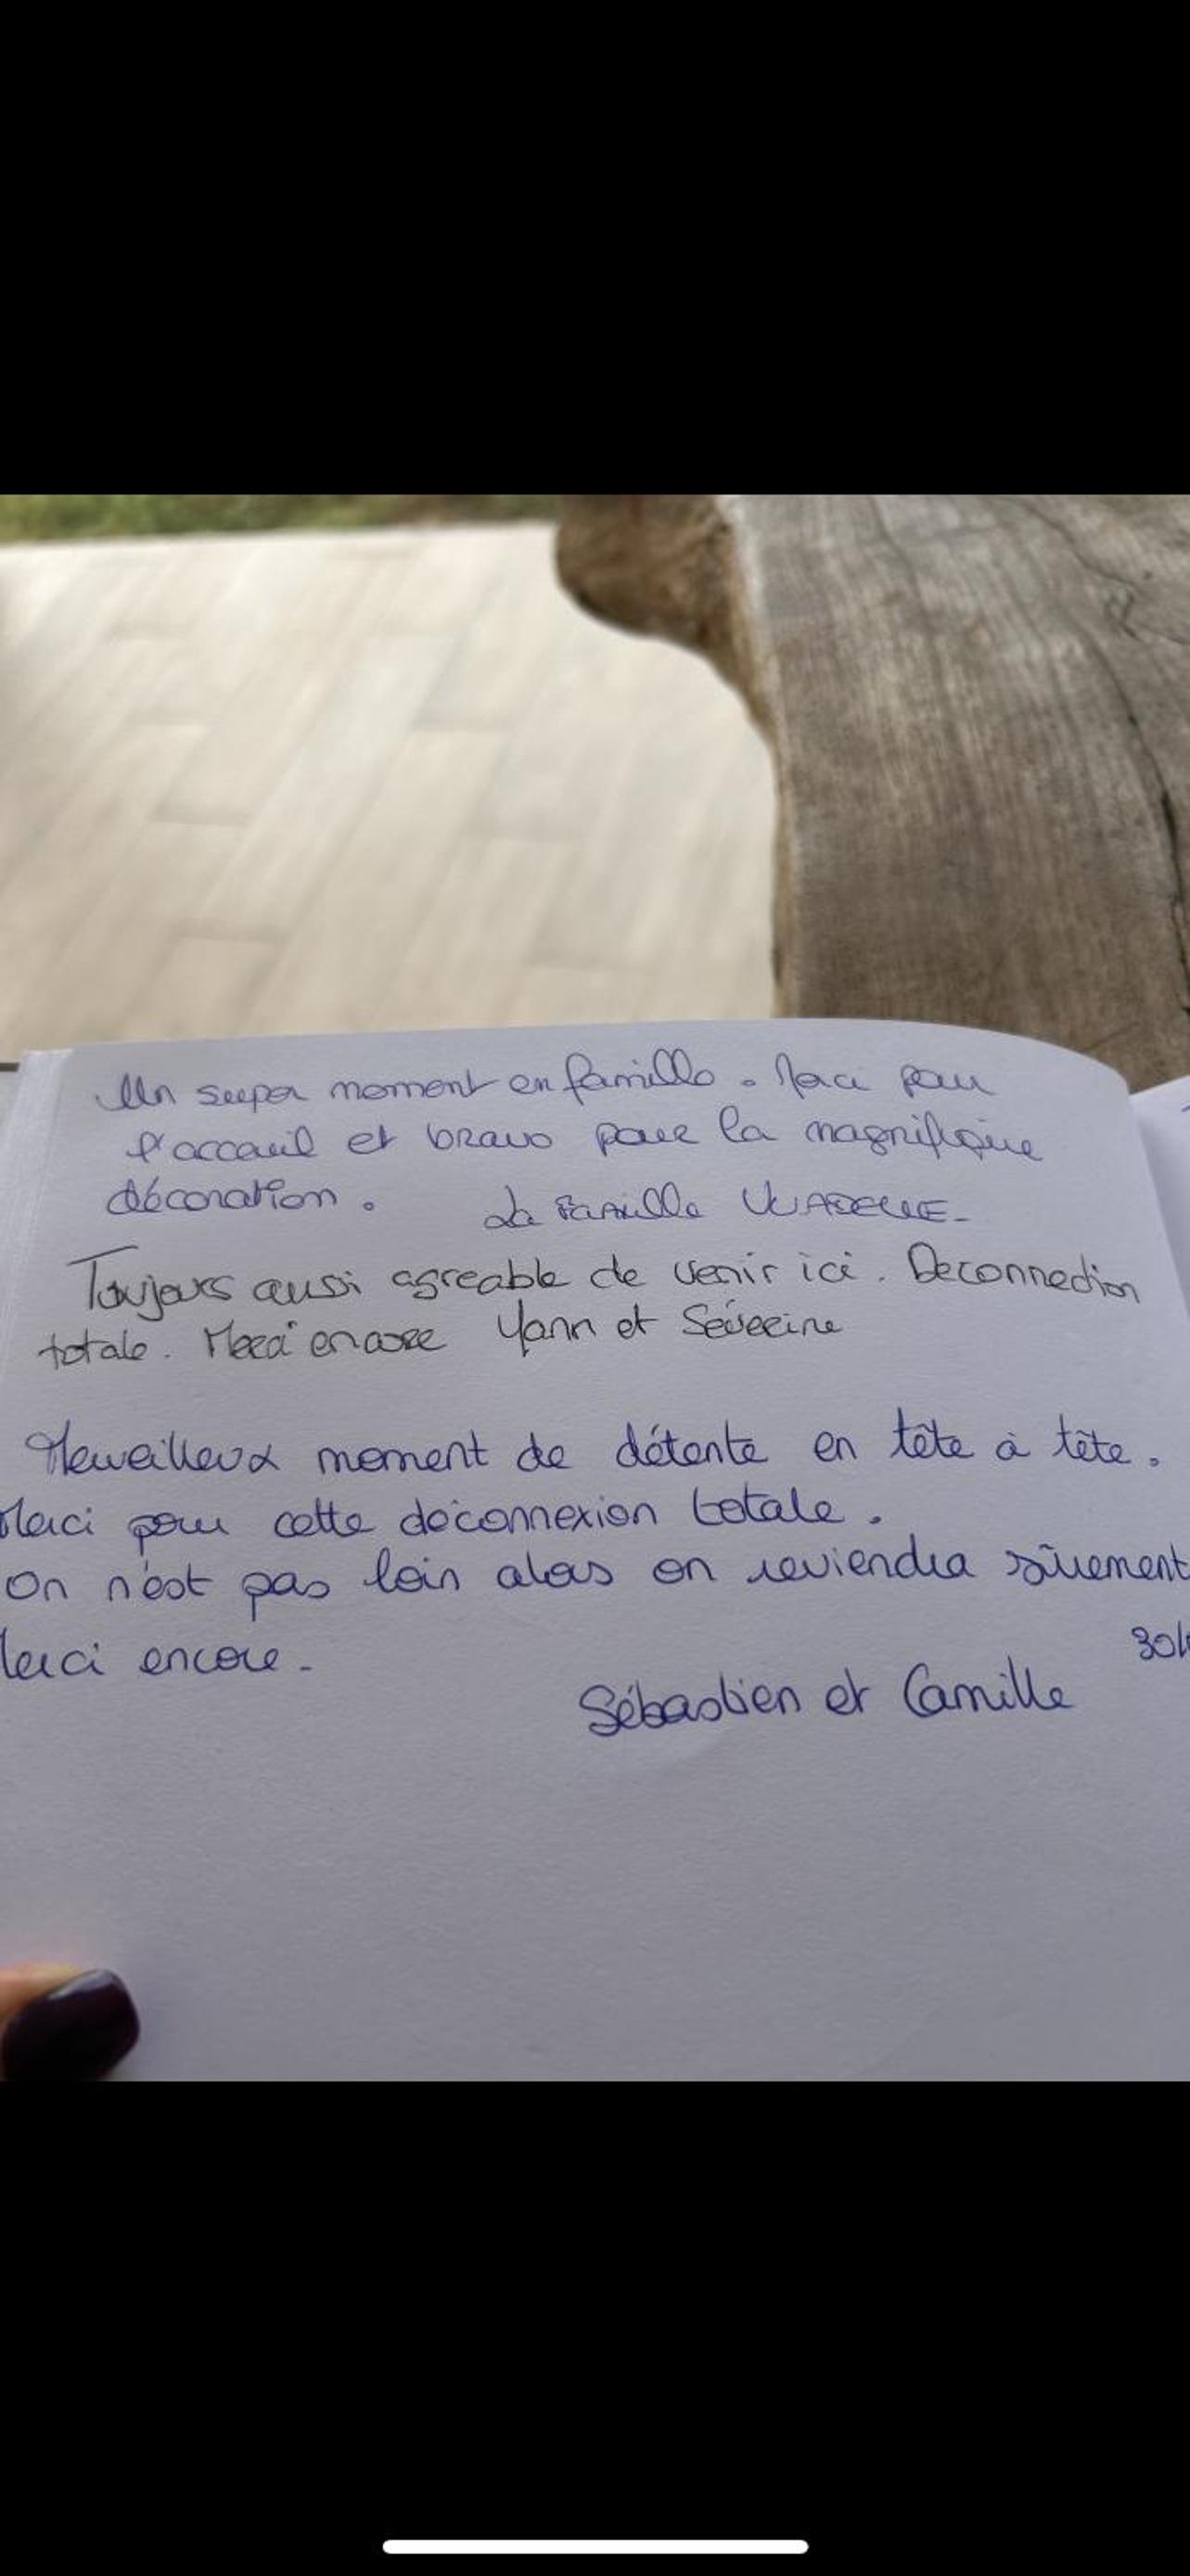 Un super moment en famille. Merci pour
l'accueil et bravo pour la magnifique
décoration. La Famille
Toujours aussi agreable de venir ici. Deconnection
totale. Merci encore Yann et Séverine
Merveilleux moment de détente en tête à tête.
Merci pour cette déconnexion totale.
On n'est pas loin alors on reviendra sûrement
Merci encore.
Sébastien et Camille